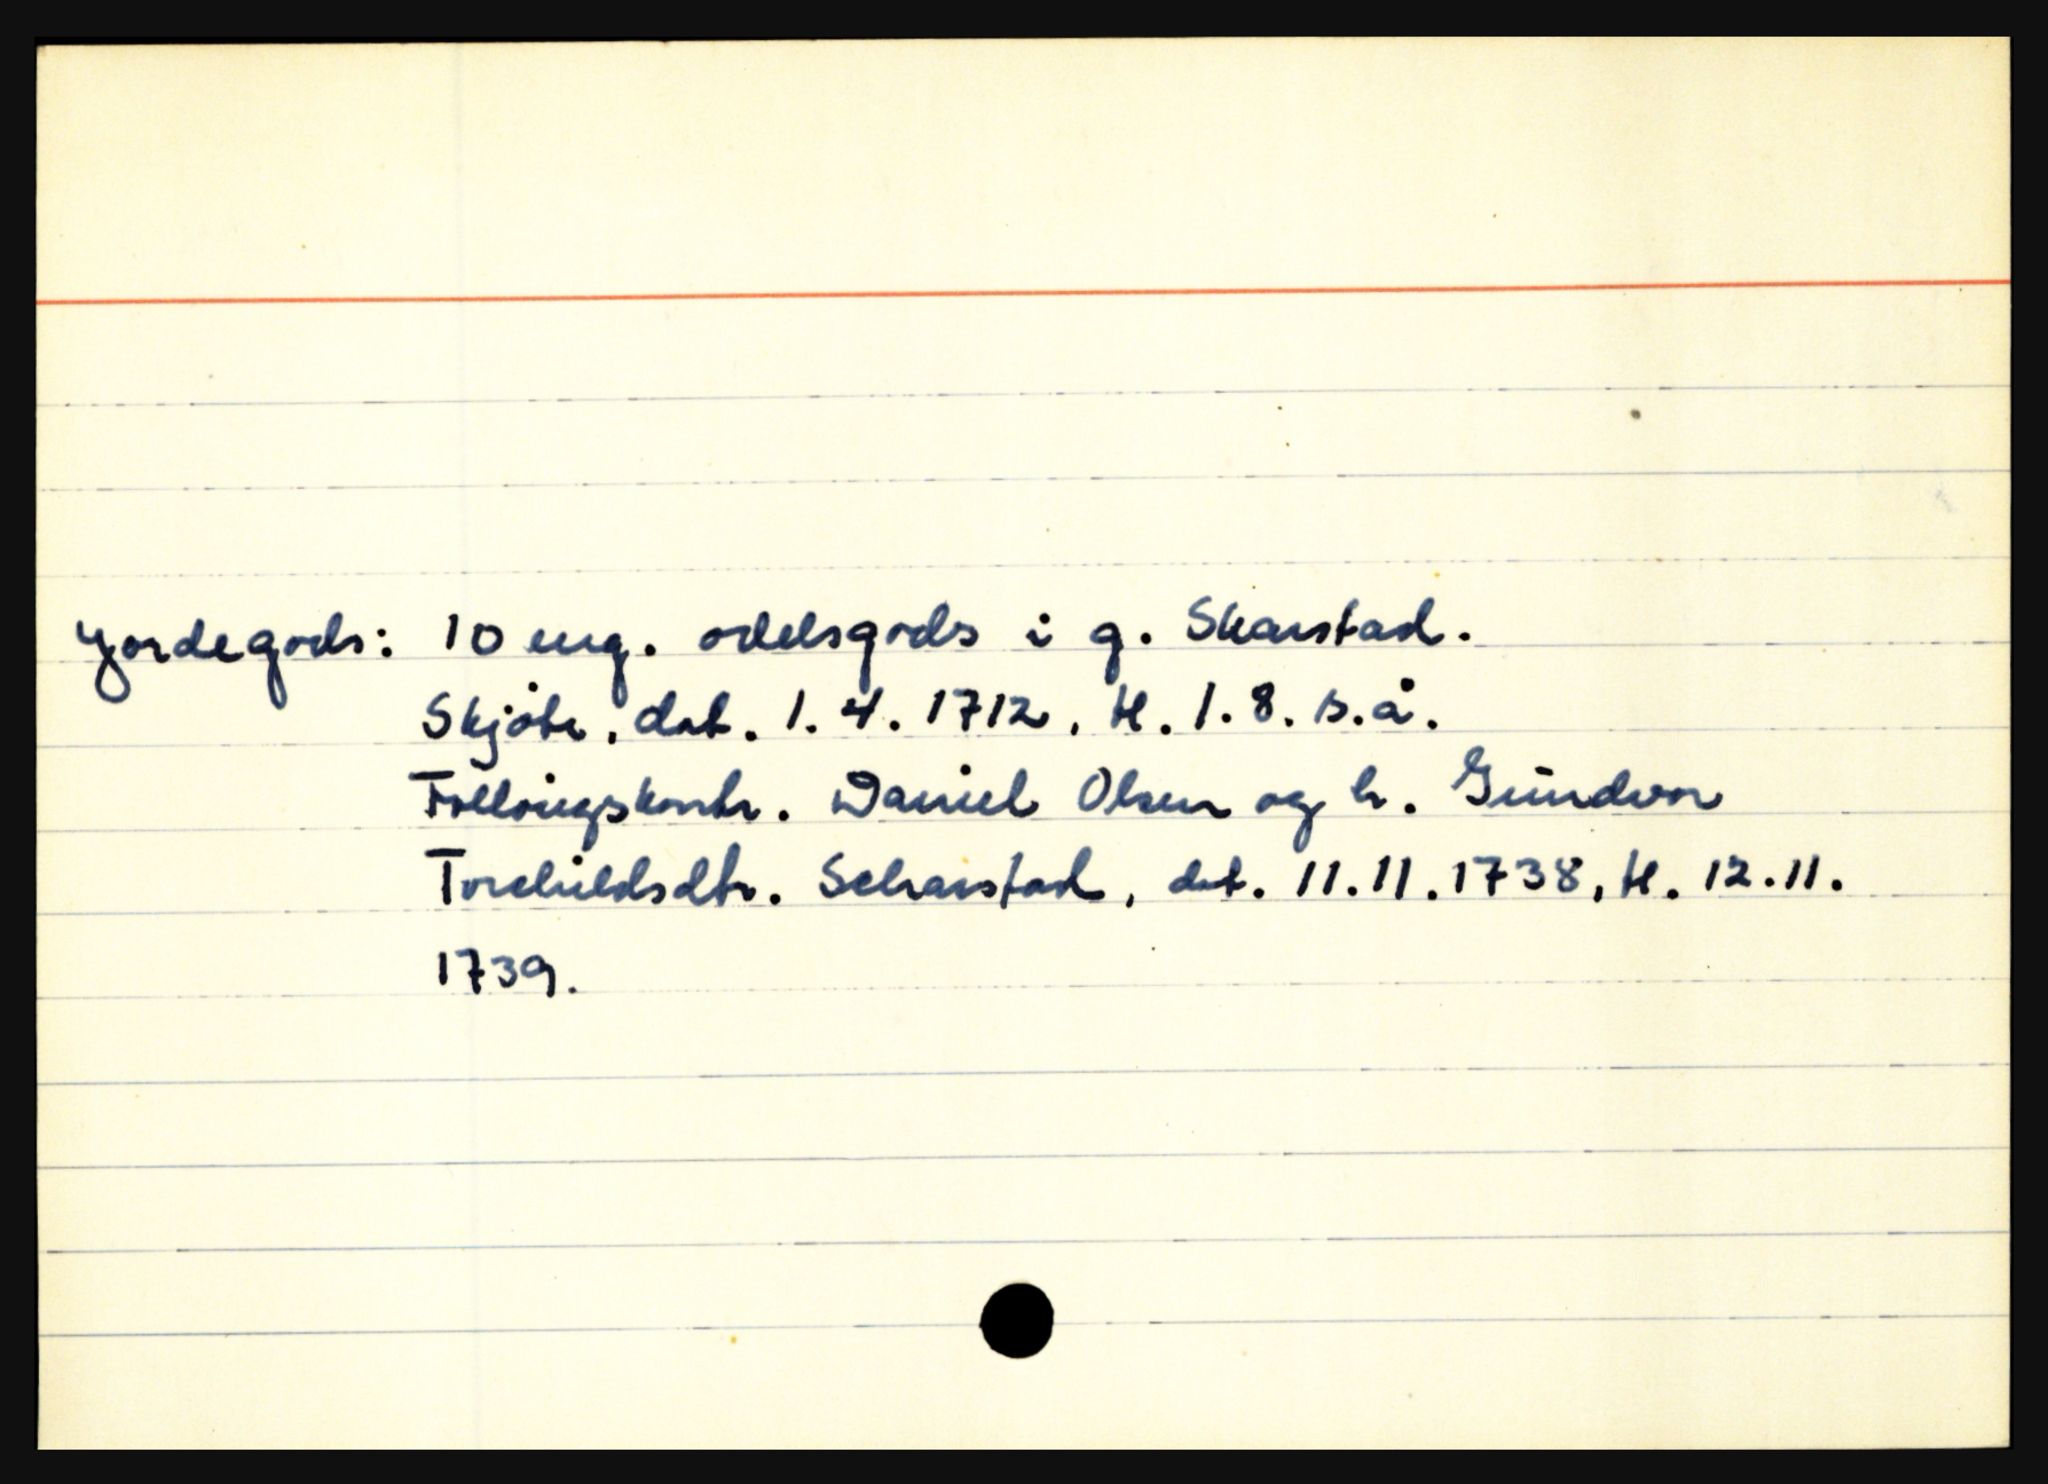 Jordegods: 10 eng. odelsgods i g. Skarstad.
Skjöte, dat. 1.4. 1712, tl. 1.8. s.å.
Follougskontr. Daniel Olsen og h. Gūndvor
Torchildsdtr. Scharstad, dat. 11.11.1738, tl. 12.11.
1739.